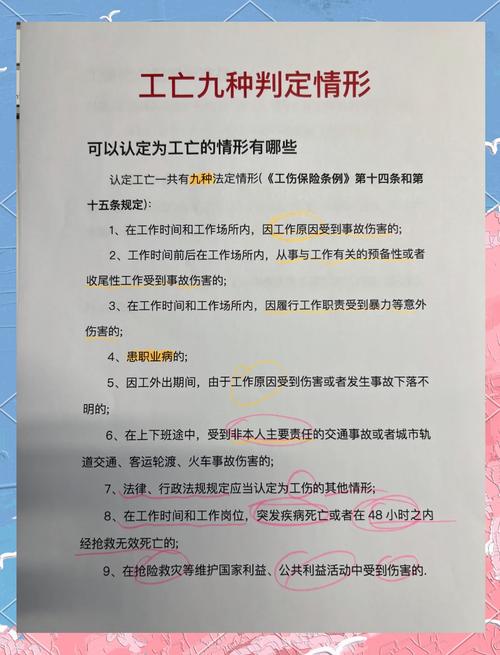 工亡九种判定情形
可以认定为工亡的情形有哪些
认定工亡一共有九种法定情形(《工伤保险条例》第十四条和第
十五条规定):
1、在工作时间和工作场所内，因工作原因受到事故伤害的;
2、工作时间前后在工作场所内，从事与工作有关的预备性或者
收尾性工作受到事故伤害的;
3、在工作时间和工作场所内，因履行工作职责受到暴力等意外
伤害的;
4、患职业病的;
5、因工外出期间，由于工作原因受到伤害或者发生事故下落不
明的;
6、在上下班途中，受到非本人主要责任的交通事故或者城市轨
道交通、客运轮渡、火车事故伤害的;
7、法律、行政法规规定应当认定为工伤的其他情形;
8、在工作时间和工作岗位，突发疾病死亡或者在 48 小时之内
经抢救无效死亡的;
9、在抢险救灾等维护国家利益、公共利益活动中受到伤害的.